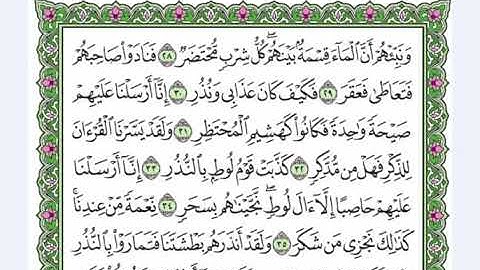 وَنَبِّئْهُمْ أَنَّ ٱلْمَآءَ قِسْمَةٌۢ بَيْنَهُمْ ۖ كُلُّ شِرْبٍ مُّحْتَضَرٌ ٢٨ فَنَادَوْا۟ صَاحِبَهُمْ
فَتَعَاطَىٰ فَعَقَرَ ٢٩ فَكَيْفَ كَانَ عَذَابِى وَنُذُرِ ٣٠ إِنَّآ أَرْسَلْنَا عَلَيْهِمْ
صَيْحَةً وَٰحِدَةً فَكَانُوا۟ كَهَشِيمِ ٱلْمُحْتَظِرِ ٣١ وَلَقَدْ يَسَّرْنَا ٱلْقُرْءَانَ
لِلذِّكْرِ فَهَلْ مِن مُّدَّكِرٍ ٣٢ كَذَّبَتْ قَوْمُ لُوطٍۭ بِٱلنُّذُرِ ٣٣ إِنَّآ أَرْسَلْنَا
عَلَيْهِمْ حَاصِبًا إِلَّآ ءَالَ لُوطٍ ۖ نَّجَّيْنَٰهُم بِسَحَرٍ ٣٤ نِّعْمَةً مِّنْ عِندِنَا ۚ
كَذَٰلِكَ نَجْزِى مَن شَكَرَ ٣٥ وَلَقَدْ أَنذَرَهُم بَطْشَتَنَا فَتَمَارَوْا۟ بِٱلنُّذُرِ